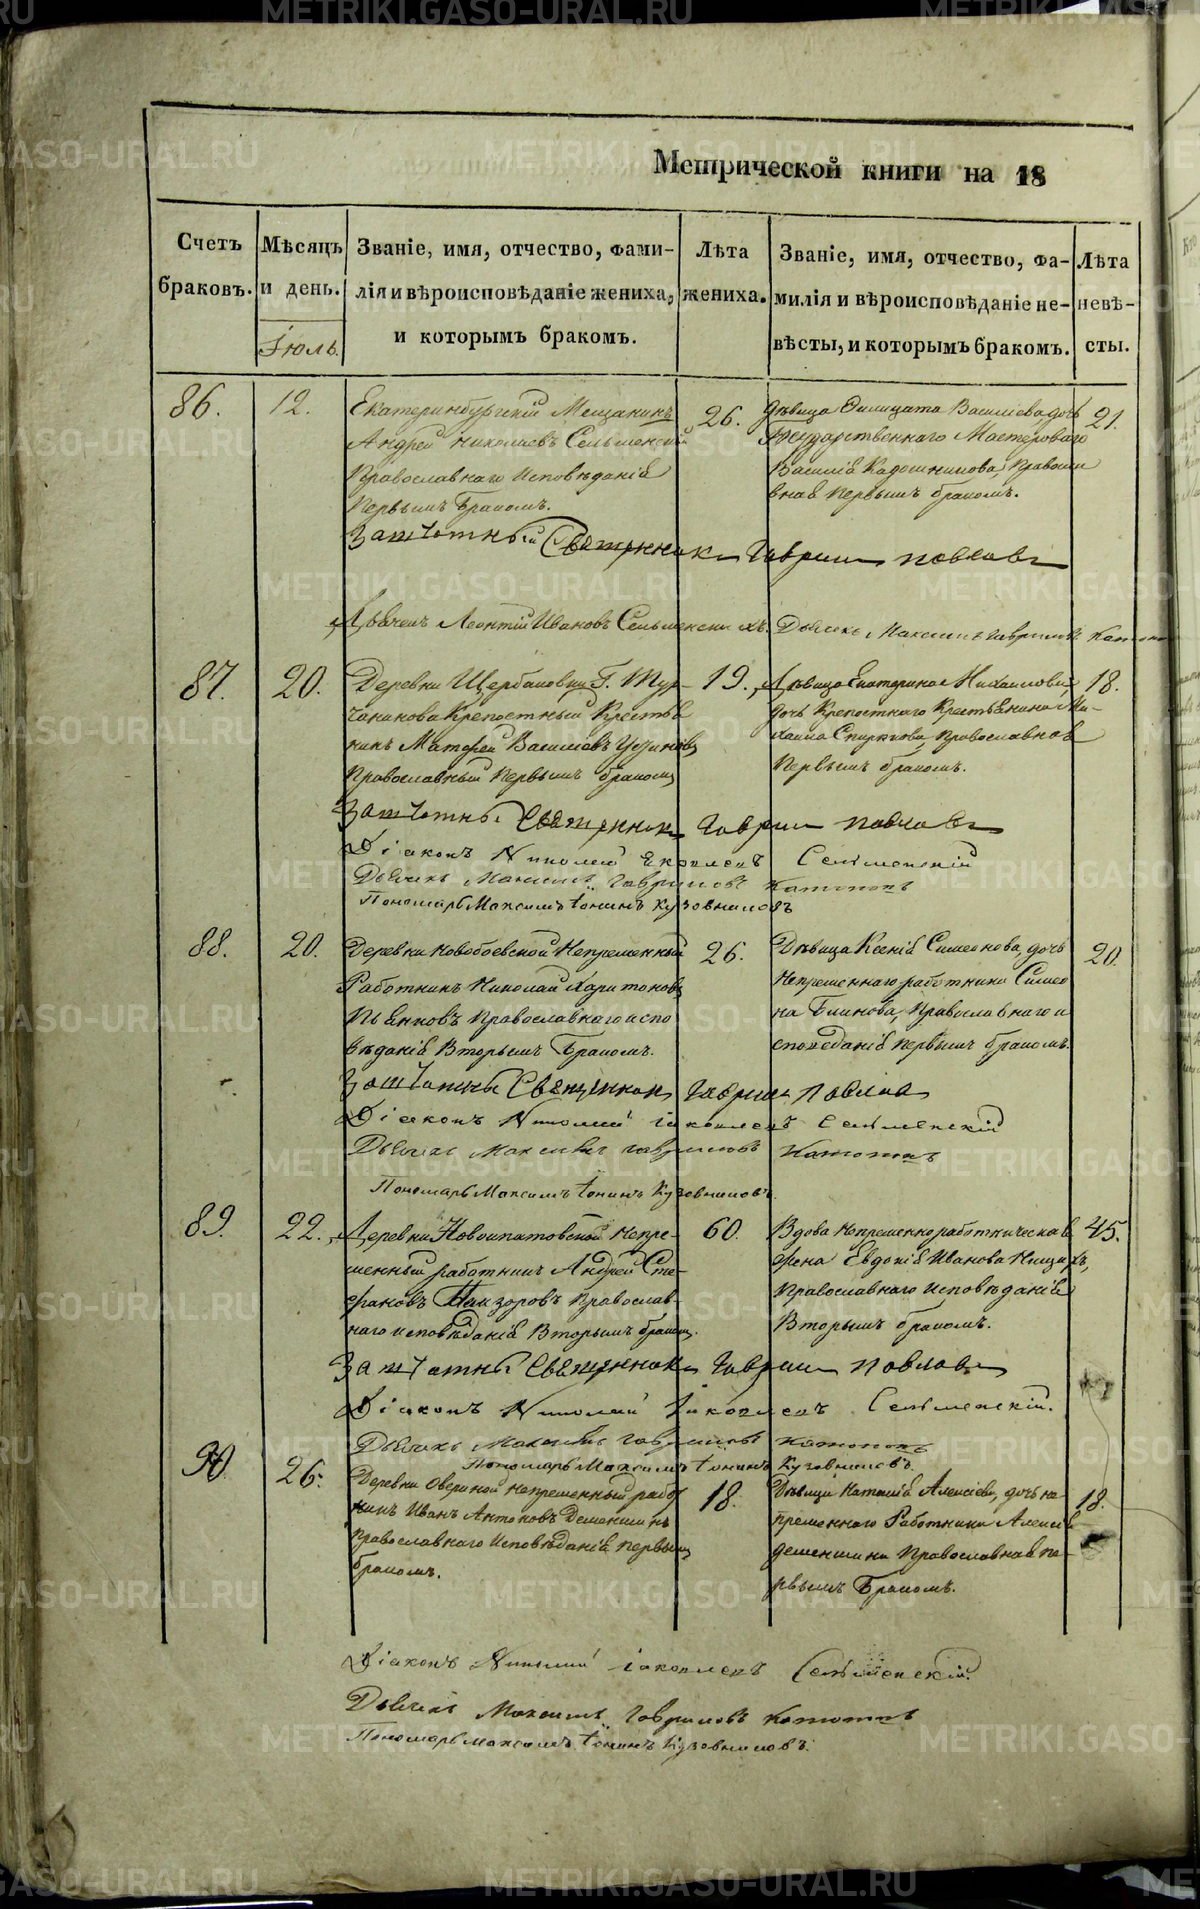 Метрической книги на 18
Счетъ браковъ.
Мѣсяцъ и день.
Званіе, имя, отчество, фами-
лія и вѣроисповѣданіе жениха,
и которымъ бракомъ.
Лѣта жениха.
Званіе, имя, отчество, фа-
милія и вѣроисповѣданіе не-
вѣсты, и которымъ бракомъ.
Лѣта невѣ-
сты.
Іюль.
86.
12.
Екатеринбургскій Мещанинъ
Андрей Николаевъ Сельменскій
Православнаго Исповѣданія
Первымъ Бракомъ.
26.
Дѣвица Василіева дочь
Государственнаго Мастероваго
Василія Кадошникова, Правосла
вная Первымъ бракомъ.
21.
Заштатный Священникъ Гавриилъ Павловъ
Леонтій Ивановъ Сельменскихъ. Дьячекъ Максимъ Гавриловъ
87.
20.
Деревни Щербаковки Г. Тур-
чанинова Крепостный Крестья
нинъ Матфей Василіевъ Устиновъ
Православный Первымъ бракомъ
19.
Дѣвица Екатерина Михаилова,
дочь Крепостнаго Крестьянина Ми-
хаила Спиркова, Православная
Первымъ бракомъ.
18.
Заштатный Священникъ Гавриилъ Павловъ
Діаконъ Николай Сельменскій
Дьячекъ Максимъ Гавриловъ
Пономарь Максимъ Кузовниковъ
88.
20.
Деревни Новобоевской Непременный
Работникъ Николай Харитоновъ
Пьянковъ Православнаго испо
вѣданія Вторымъ Бракомъ.
26.
Дѣвица Ксенія Симеонова, дочь
Непременнаго работника Симео
на Блинова, Православнаго и
споведанія первымъ бракомъ.
20.
Заштатный Священникъ Гавриилъ Павловъ
Діаконъ Николай Сельменскій
Дьячекъ Максимъ Гавриловъ
Пономарь Максимъ Кузовниковъ.
89.
22.
Деревни Новоипатовской Непре-
менный работникъ Андрей Сте-
фановъ Православ-
наго исповѣданія Вторымъ бракомъ.
60.
Вдова Непременно работническая
жена Евдокія Иванова
Православнаго Исповѣданія
Вторымъ бракомъ.
45.
Заштатный Священникъ Гавриилъ Павловъ
Діаконъ Николай Сельменскій.
Дьячекъ Максимъ Гавриловъ
Пономарь Максимъ Кузовниковъ.
90
26.
Деревни непременный работ
никъ Иванъ Антоновъ Деменшинъ
Православнаго Исповѣданія первымъ
бракомъ.
18.
Дѣвица Наталія Алексіева, дочь не
пременнаго Работника Алексія
Деменшина Православная пе-
рвымъ Бракомъ.
18.
Діаконъ Николай Сельменскій.
Дьячекъ Максимъ Гавриловъ
Пономарь Максимъ Кузовниковъ.
METRIKI.GASO-URAL.RU